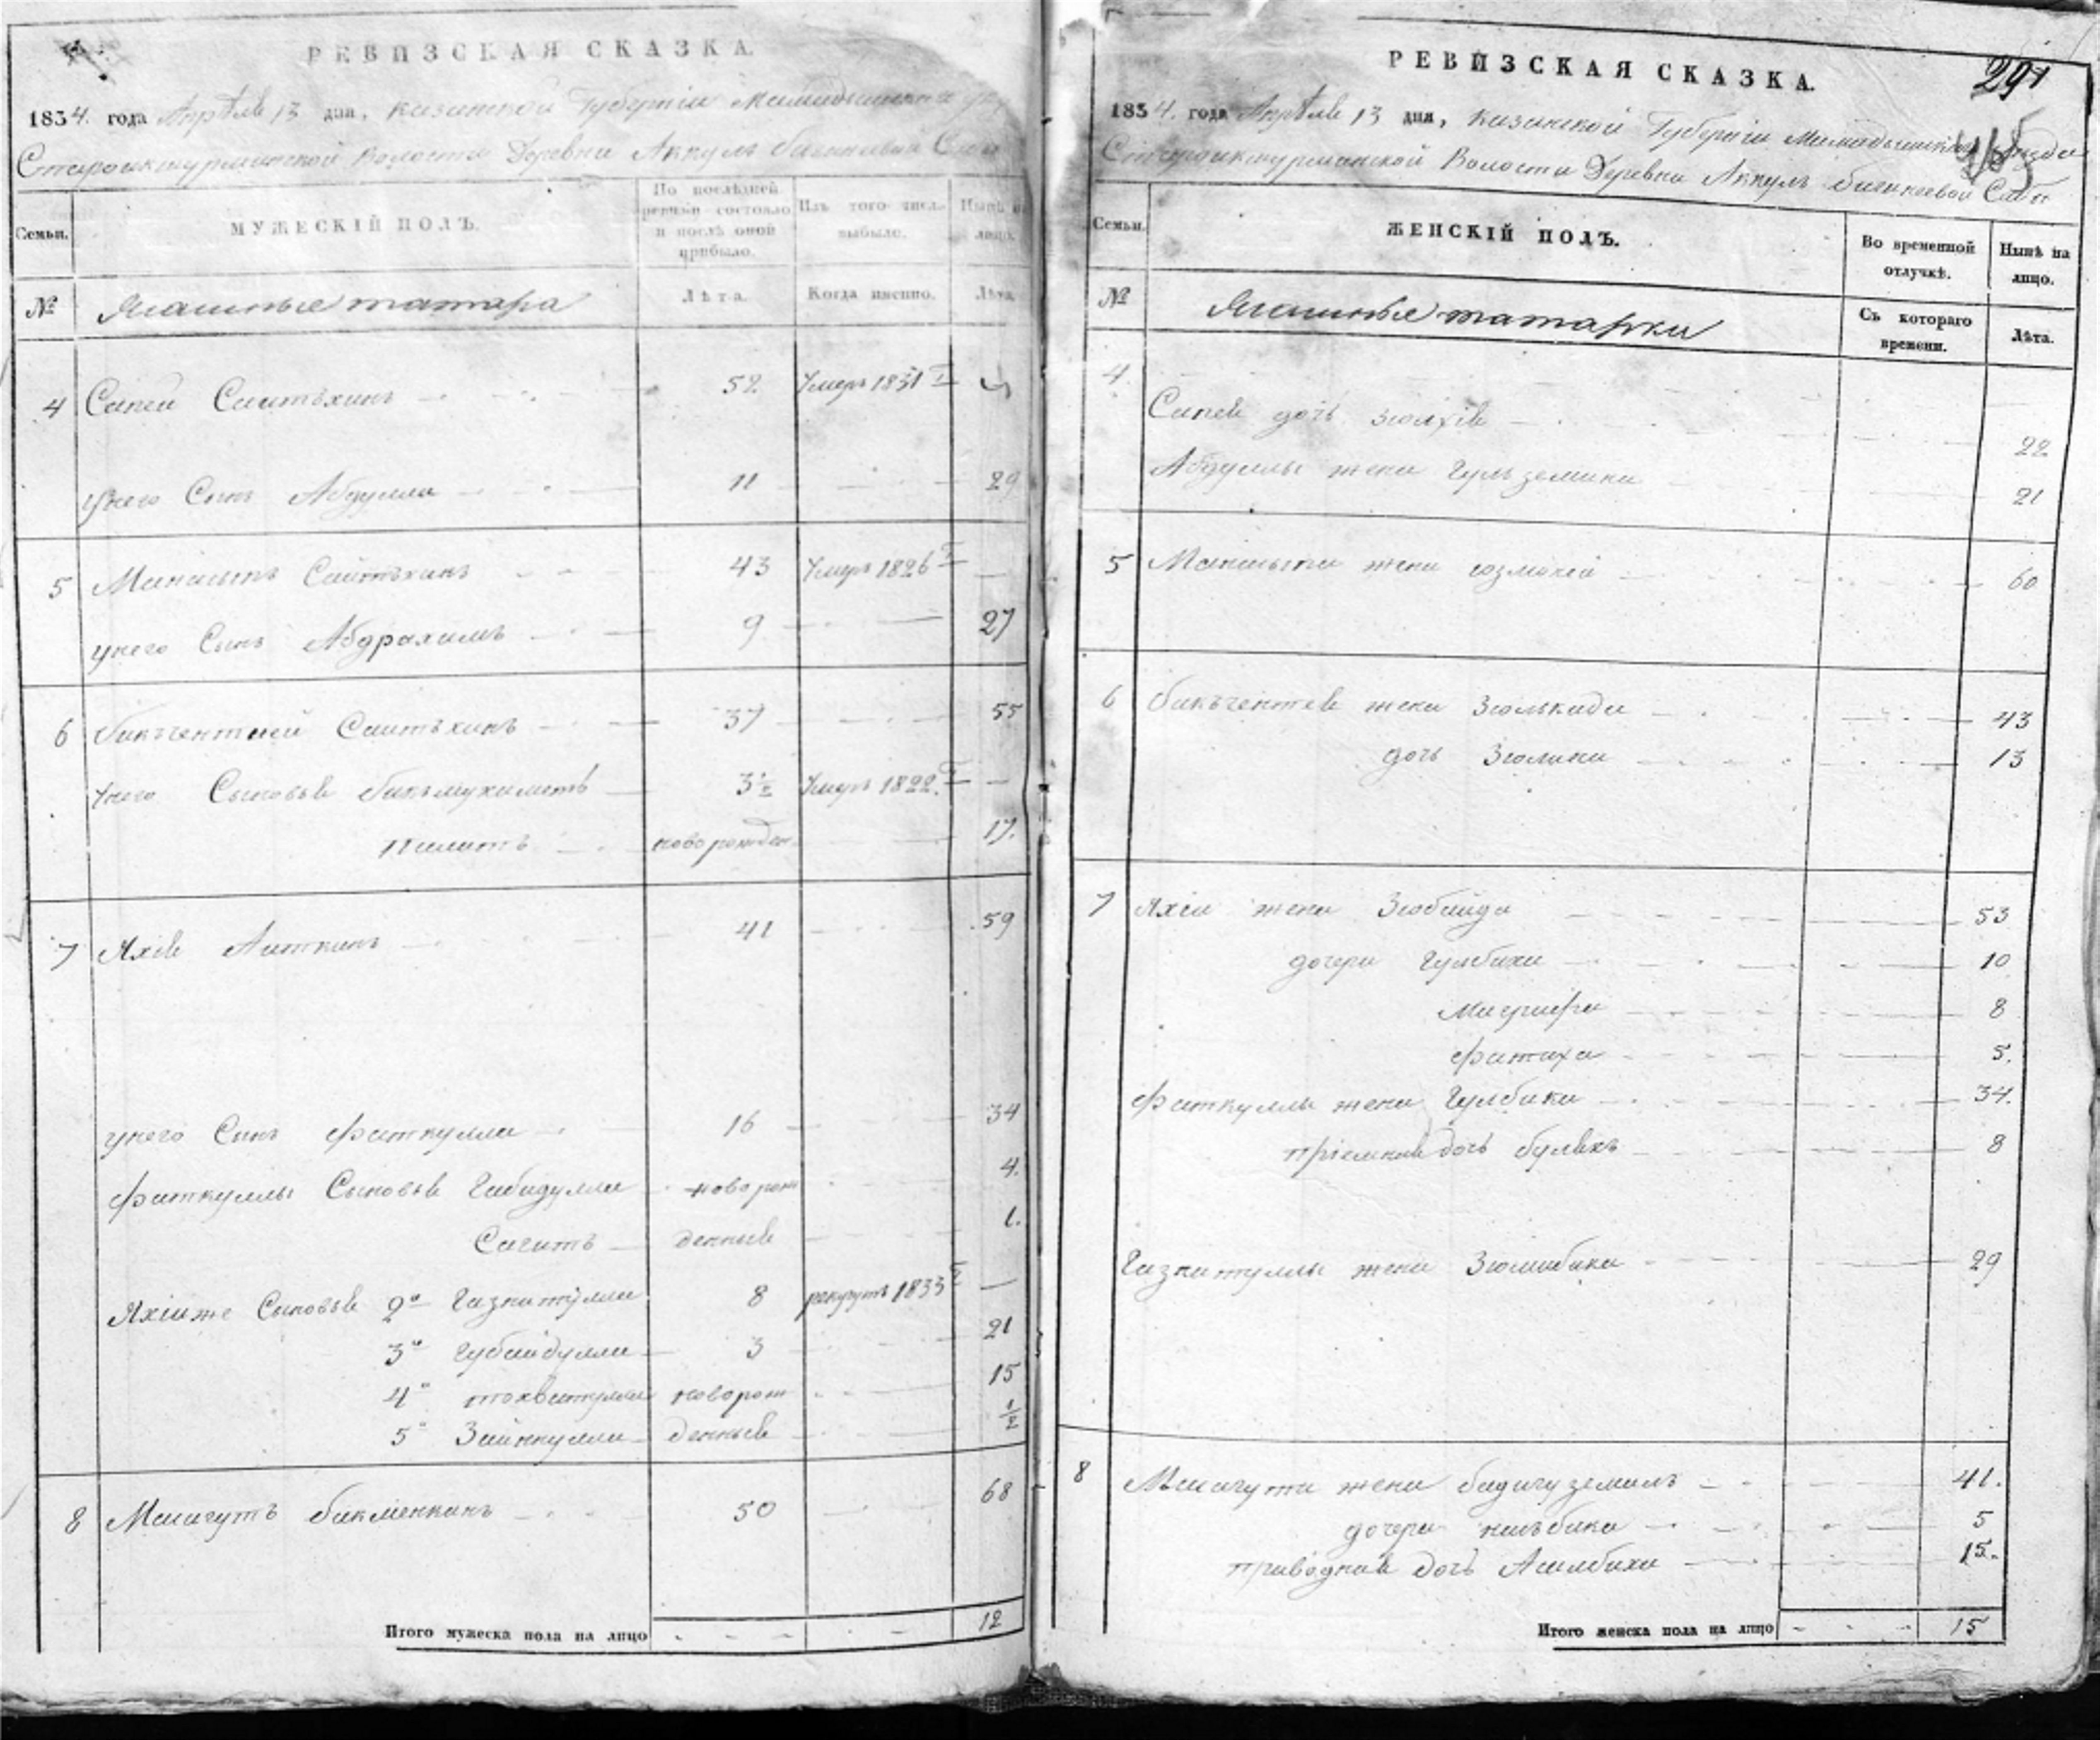 РЕВИЗСКАЯ СКАЗКА.
1834. года Апрѣля 13 дня, Казанской Губернiи Мамадышскаго
Староикшурминской Волости Деревни Аккулъ бигеневой
Семьи.
МУЖЕСКIЙ ПОЛЪ.
По послѣдней ревизiи состояло и послѣ оной прибыло.
Изъ того числа выбыло.
Нынѣ на лицо.
№
Ясашные татара
Лѣта.
Когда именно.
Лѣта.
4 Сапей Саитъхинъ 52 Умеръ 1831 г
унего Сынъ Абдулла 11 29
5 Манасыпъ Саитъхинъ 43 Умеръ 1826 г —
унего Сынъ Абдрахимъ 9 27
6 бикъчентаей Саитъхинъ 37 55
унего Сыновья бикъмухаметъ 3½ Умеръ 1822. г —
новорожден 17.
7 Яхiя Аиткинъ 41 59
унего Сынъ Фаткулла 16 34
Фаткуллы Сыновья Габидулла новорож 4.
Сагитъ денныя 1.
Яхiи же Сыновья 2й Газзатулла 8 рекрутъ 1833 г —
3й Губайдулла 3 21
4й новорож 15
5й Зайнкулла денныя ½
8 Масагутъ бикменкинъ 50 68
Итого мужеска пола на лицо 12
РЕВИЗСКАЯ СКАЗКА.
291
1834. года Апрѣля 13 дня, Казанской Губернiи Мамадышскаго уѣзда
Староикшурминской Волости Деревни Аккулъ бигенеевой
Семьи.
ЖЕНСКIЙ ПОЛЪ.
Во временной отлучкѣ.
Нынѣ на лицо.
№
Ясашные татарки
Съ котораго времени.
Лѣта.
4
Сапея дочь Зюлхiя 22
Абдуллы жена Гульземина 21
5 Манасыпа жена 60
6 бикъчентея жена Зюлькада 43
дочь Зюлина 13
7 Яхiи жена Зюбайда 53
дочери Гулбика 10
8
Фатиха 5.
Фаткуллы жена Гулбика 34.
прiемная дочь булякъ 8
Газзатуллы жена Зюлибика 29
8 Масагута жена бадигуземалъ 41.
дочери 5
приводная дочь Асылбика 15.
Итого женска пола на лицо 15